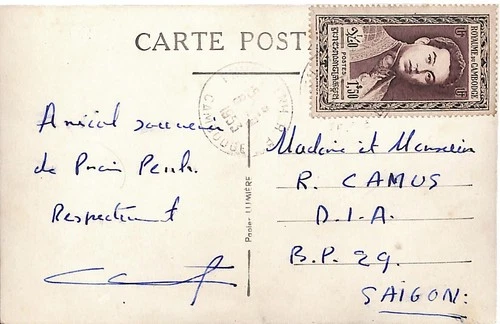 CARTE POST
ROYAUME DU CAMBODGE
POSTES
1$50
CAMBODGE
1953
Amical souvenir
de Pnom Penh.
Respectueusement
Papier LUMIÈRE
Madame et Monsieur
R. CAMUS
D.I.A.
B.P. 29.
SAIGON.